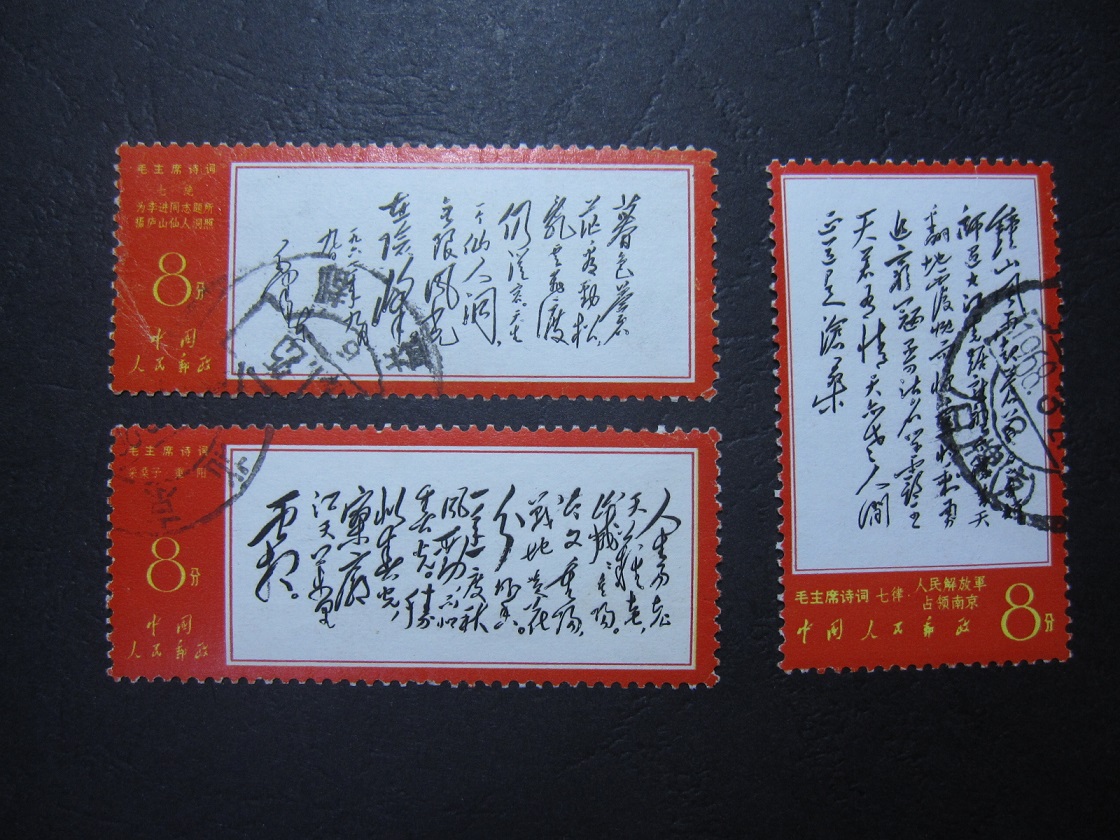 毛主席诗词
七绝
为李进同志题所
摄庐山仙人洞照
8分
中国
人民邮政
暮色蒼
茫看劲松
乱云飞渡
仍从容。天生
一个仙人洞,
无限风光
在险峰
一九六一年九月
九日
毛泽东
毛主席诗词
采桑子·重阳
8分
中国
人民邮政
人生易老
天难老,
岁岁重阳。
今又重阳,
戰地黄花
分外香。
一年一度秋
风劲,不似
春光。胜
似春光,
寥廓
江天万里
霜。
鍾山风雨起苍黄百万雄
师过大江虎踞龙盘今胜昔天
翻地覆慨而慷宜将剩勇
追穷寇不可沽名学霸王
天若有情天亦老人间
正道是滄桑
毛主席诗词 七律·人民解放軍
占领南京
8分
中国人民邮政